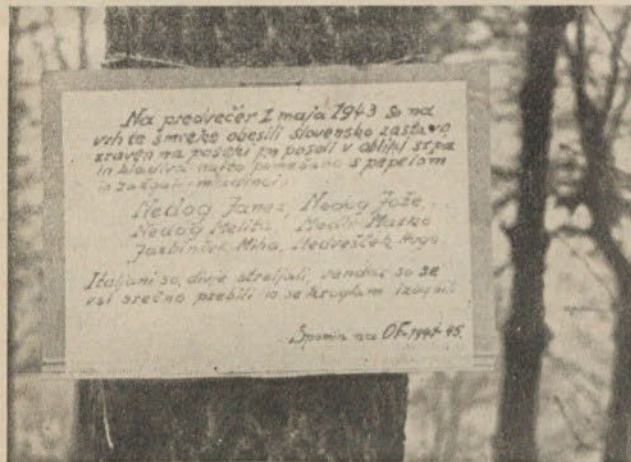 Na predvečer 1 maja 1943 so na
vrh te smreke obesili slovensko zastavo,
zraven na poseki pa posoli v obliki srpa
in kladiva nafto pomešano s pepelom
in zažgali mladinci:
Nedog Janez, Nedog Jože,
Nedog Melita, Medle Marko
Jazbinšek Miha, Medvešček Hugo
Italjani so divje streljali, vendar so se
vsi srečno prebili in se kroglam izognili
Spomin na OF-1941-45.